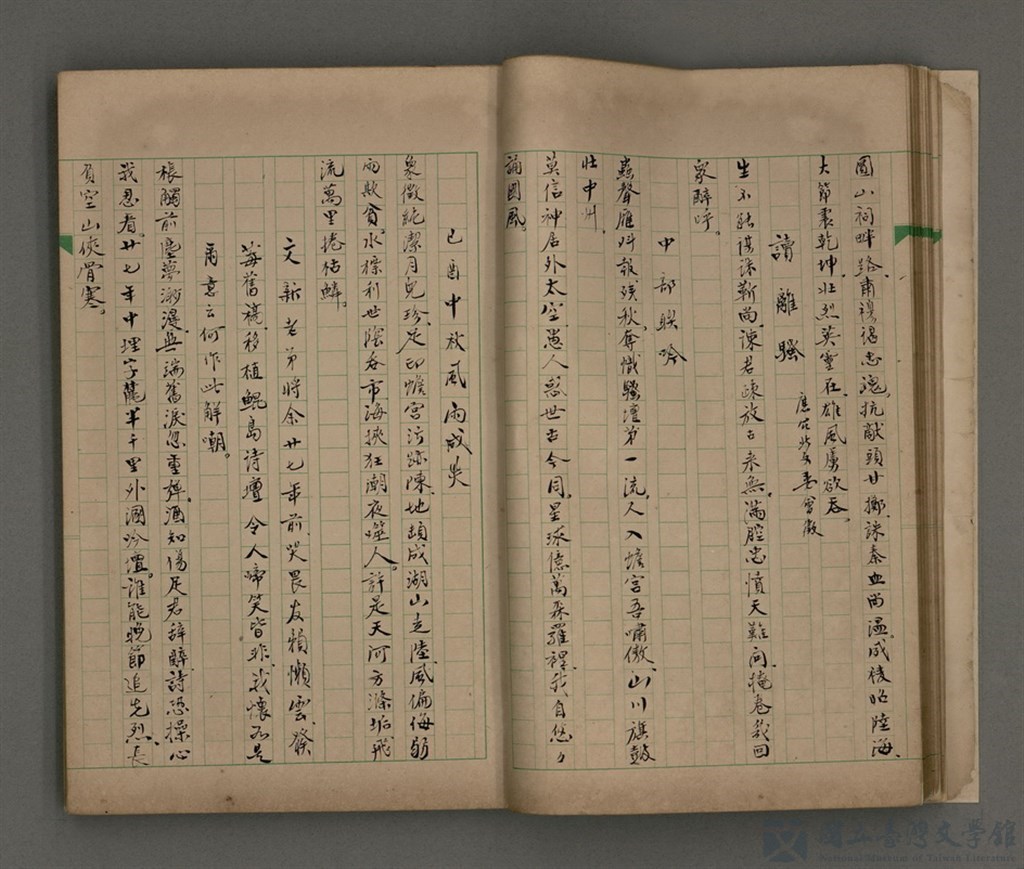 圓山祠畔路甫複過忠魂。抗敵頭甘擲、誅秦血尚溫。成後昭陸海、
大節褱乾坤。壯烈英靈在、雄風虜欲吞。
讀離騷
生不能謀誅靳尚、諫君疎放古來無。滿腔忠憤天難問、掩卷幾回
眾醉呼。
中部聯吟
蟲聲雁叫報殘秋、奪幟騷壇第一流。人入蟾宮吾嘯傲、山川旗鼓
壯中州。
莫信神居外太空、愚人惑世古今同。星球億萬森羅裡、我自悠々
誦國風。
己酉中秋風雨成災
象徵純潔月兒珍、足印蟾宮污跡陳。地頓成湖山走陸、風偏侮弱
雨欺貧。水標利世陰吞市、海挾狂潮夜噬人。許是天河方滌垢、飛
流萬里捲枯鱗。
文新老弟將余廿七年前哭畏友賴懶雲發
莓舊稿、移植鯤島詩壇、令人啼笑皆非、我懷不是
雨意云何、作此解嘲。
棖觸前塵夢渺漫、無端舊淚忽重彈。酒知傷足君辭醉、詩恐操心
我忍看。廿七年中埋字麓、半千里外涸吟壇。誰能晚節追先烈、長
負空山俠骨寒。